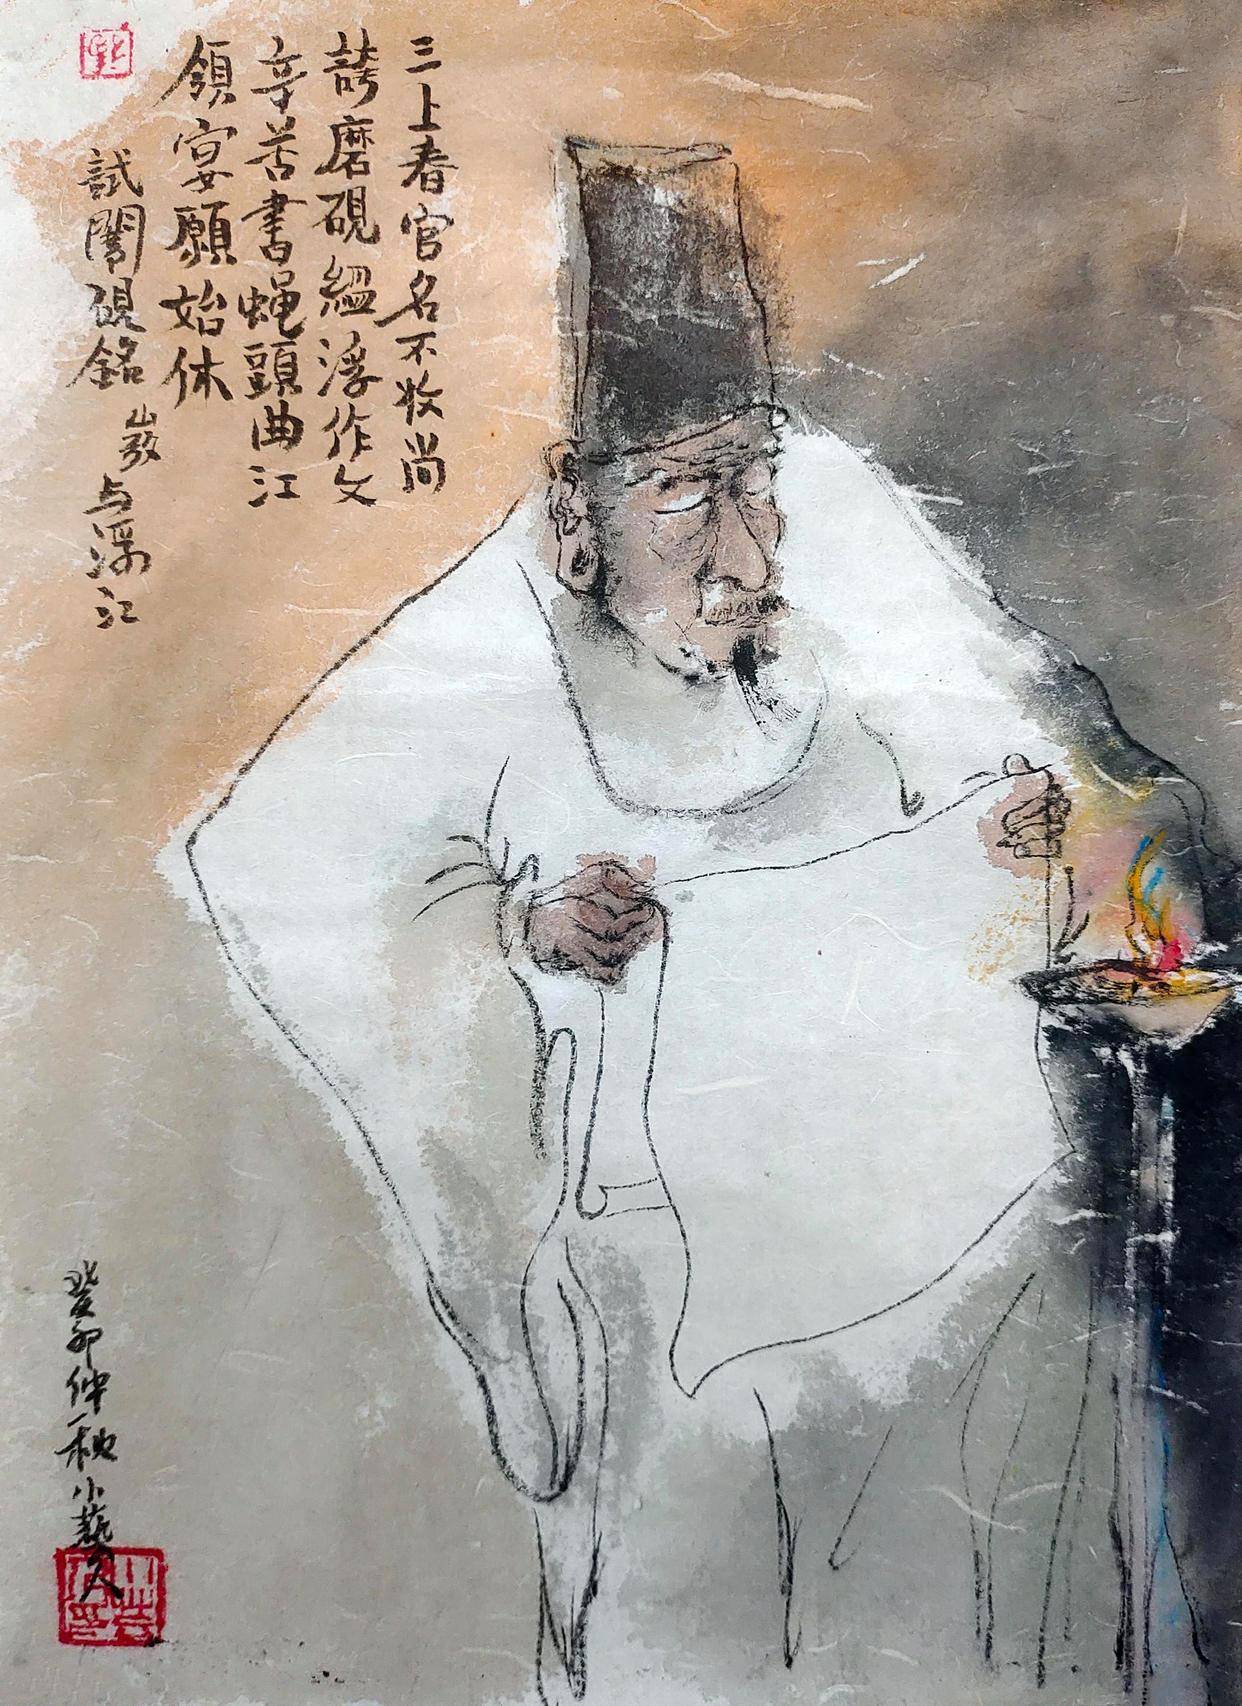 三上春官名不收尚
誇磨硯緼浮作文
辛苦書蝿頭曲江
領宴願始休
試闈硯銘 与江
癸卯仲秋小藝人